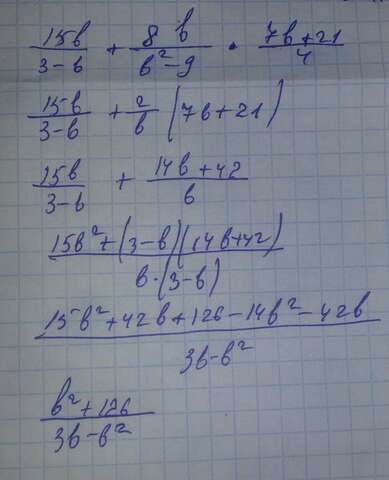 15b/(3-b) + 8b/(b²-9) · (7b+21)/4
15b/(3-b) + 2/b (7b+21)
15b/(3-b) + (14b+42)/b
(15b²+(3-b)(14b+42))/(b·(3-b))
(15b²+42b+126-14b²-42b)/(3b-b²)
(b²+126)/(3b-b²)